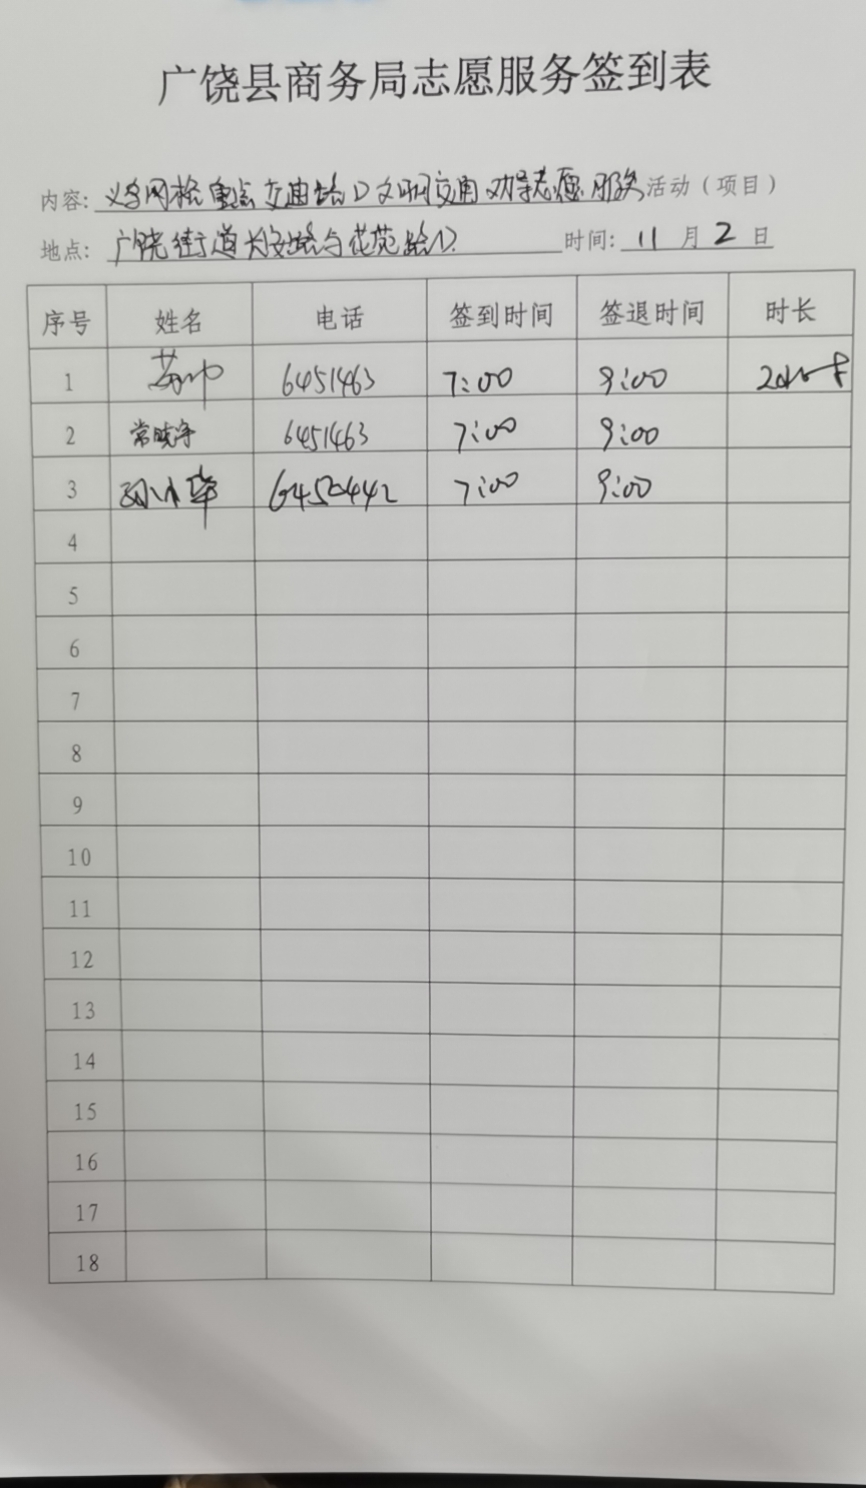 广饶县商务局志愿服务签到表
内容: 网格重点交通路口文明交通劝导志愿服务活动（项目）
地点: 广饶街道长安路与花苑路口 时间: 11 月 2 日
序号 姓名 电话 签到时间 签退时间 时长
1 6451463 7:00 9:00 2小时
2 常晓宇 6451463 7:00 9:00
3 孙小华 6450442 7:00 9:00
4
5
6
7
8
9
10
11
12
13
14
15
16
17
18